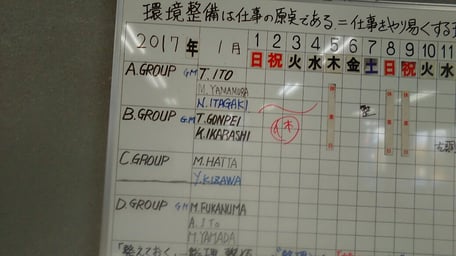 環境整備は仕事の原点である=仕事をやり易くする
2017年 1月 1 2 3 4 5 6 7 8 9 10 11
日 祝 火 水 木 金 土 日 祝 火 水
A.GROUP GM T.ITO
M.YAMAMURA
N.ITAGAKI
B.GROUP GM T.GONPEI
K.IKARASHI
休
C.GROUP M.HATTA
Y.KIZAWA
D.GROUP GM M.FUKANUMA
A.ITO
M.YAMADA